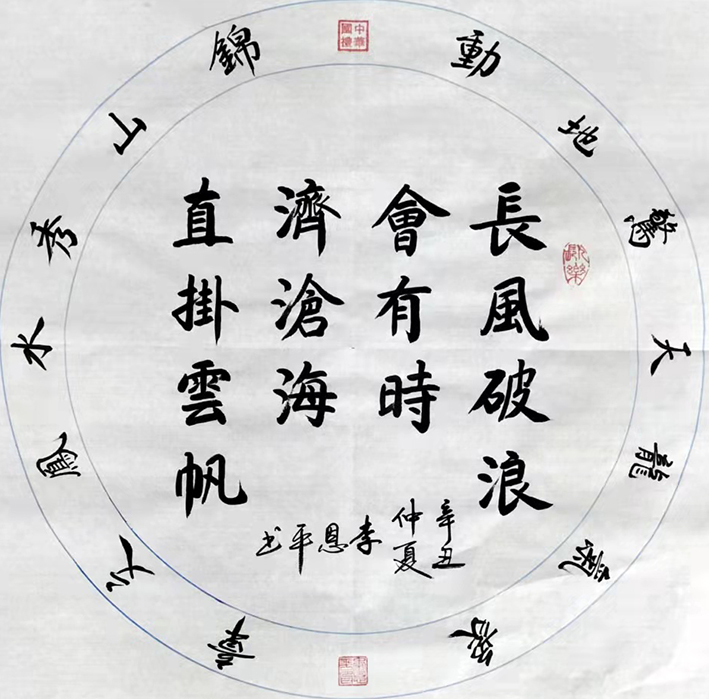 長風破浪
會有時
濟滄海
直掛雲帆
辛丑
仲夏
李恩平书
動地驚天龍靈
錦山秀水鳳
中華
國禮